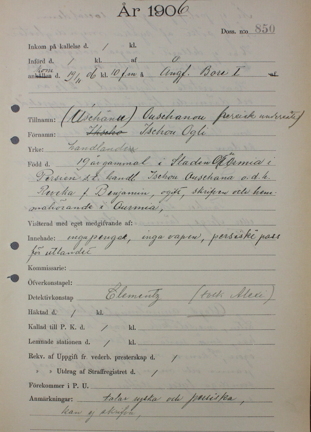 År 1906
Doss. n:o 850
Inkom på kallelse d. / kl.
Införd d. / kl. af O
kom
anhållen d. 14/11 06 kl. 10 fm å Ångf. Bore I
Tillnamn: (Uschánu) Auschanou (persisk undersåte)
Förnamn: Ischou Ogli
Yrke: handlande
Född d. 19 år gammal i Staden Urmia i
Persien s.t. handl. Ischou Auschana o.d.h.
f. Benjamin, ogift, skrifven och hem-
mahörande i Ourmia,
Visiterad med eget medgifvande af:
Innehade: inga pengar, inga vapen, persiskt pass
för utlandet
Kommissarie:
Öfverkonstapel:
Detektivkonstap: Clementz
Häktad d. / kl.
Kallad till P. K. d. / kl.
Lemnade stationen d. / kl.
Rekv. af Uppgift fr vederb. presterskap d. /
» » Utdrag af Straffregistret d. /
Förekommer i P. U.
Anmärkningar: talar ryska och persiska,
kan ej skrifva,